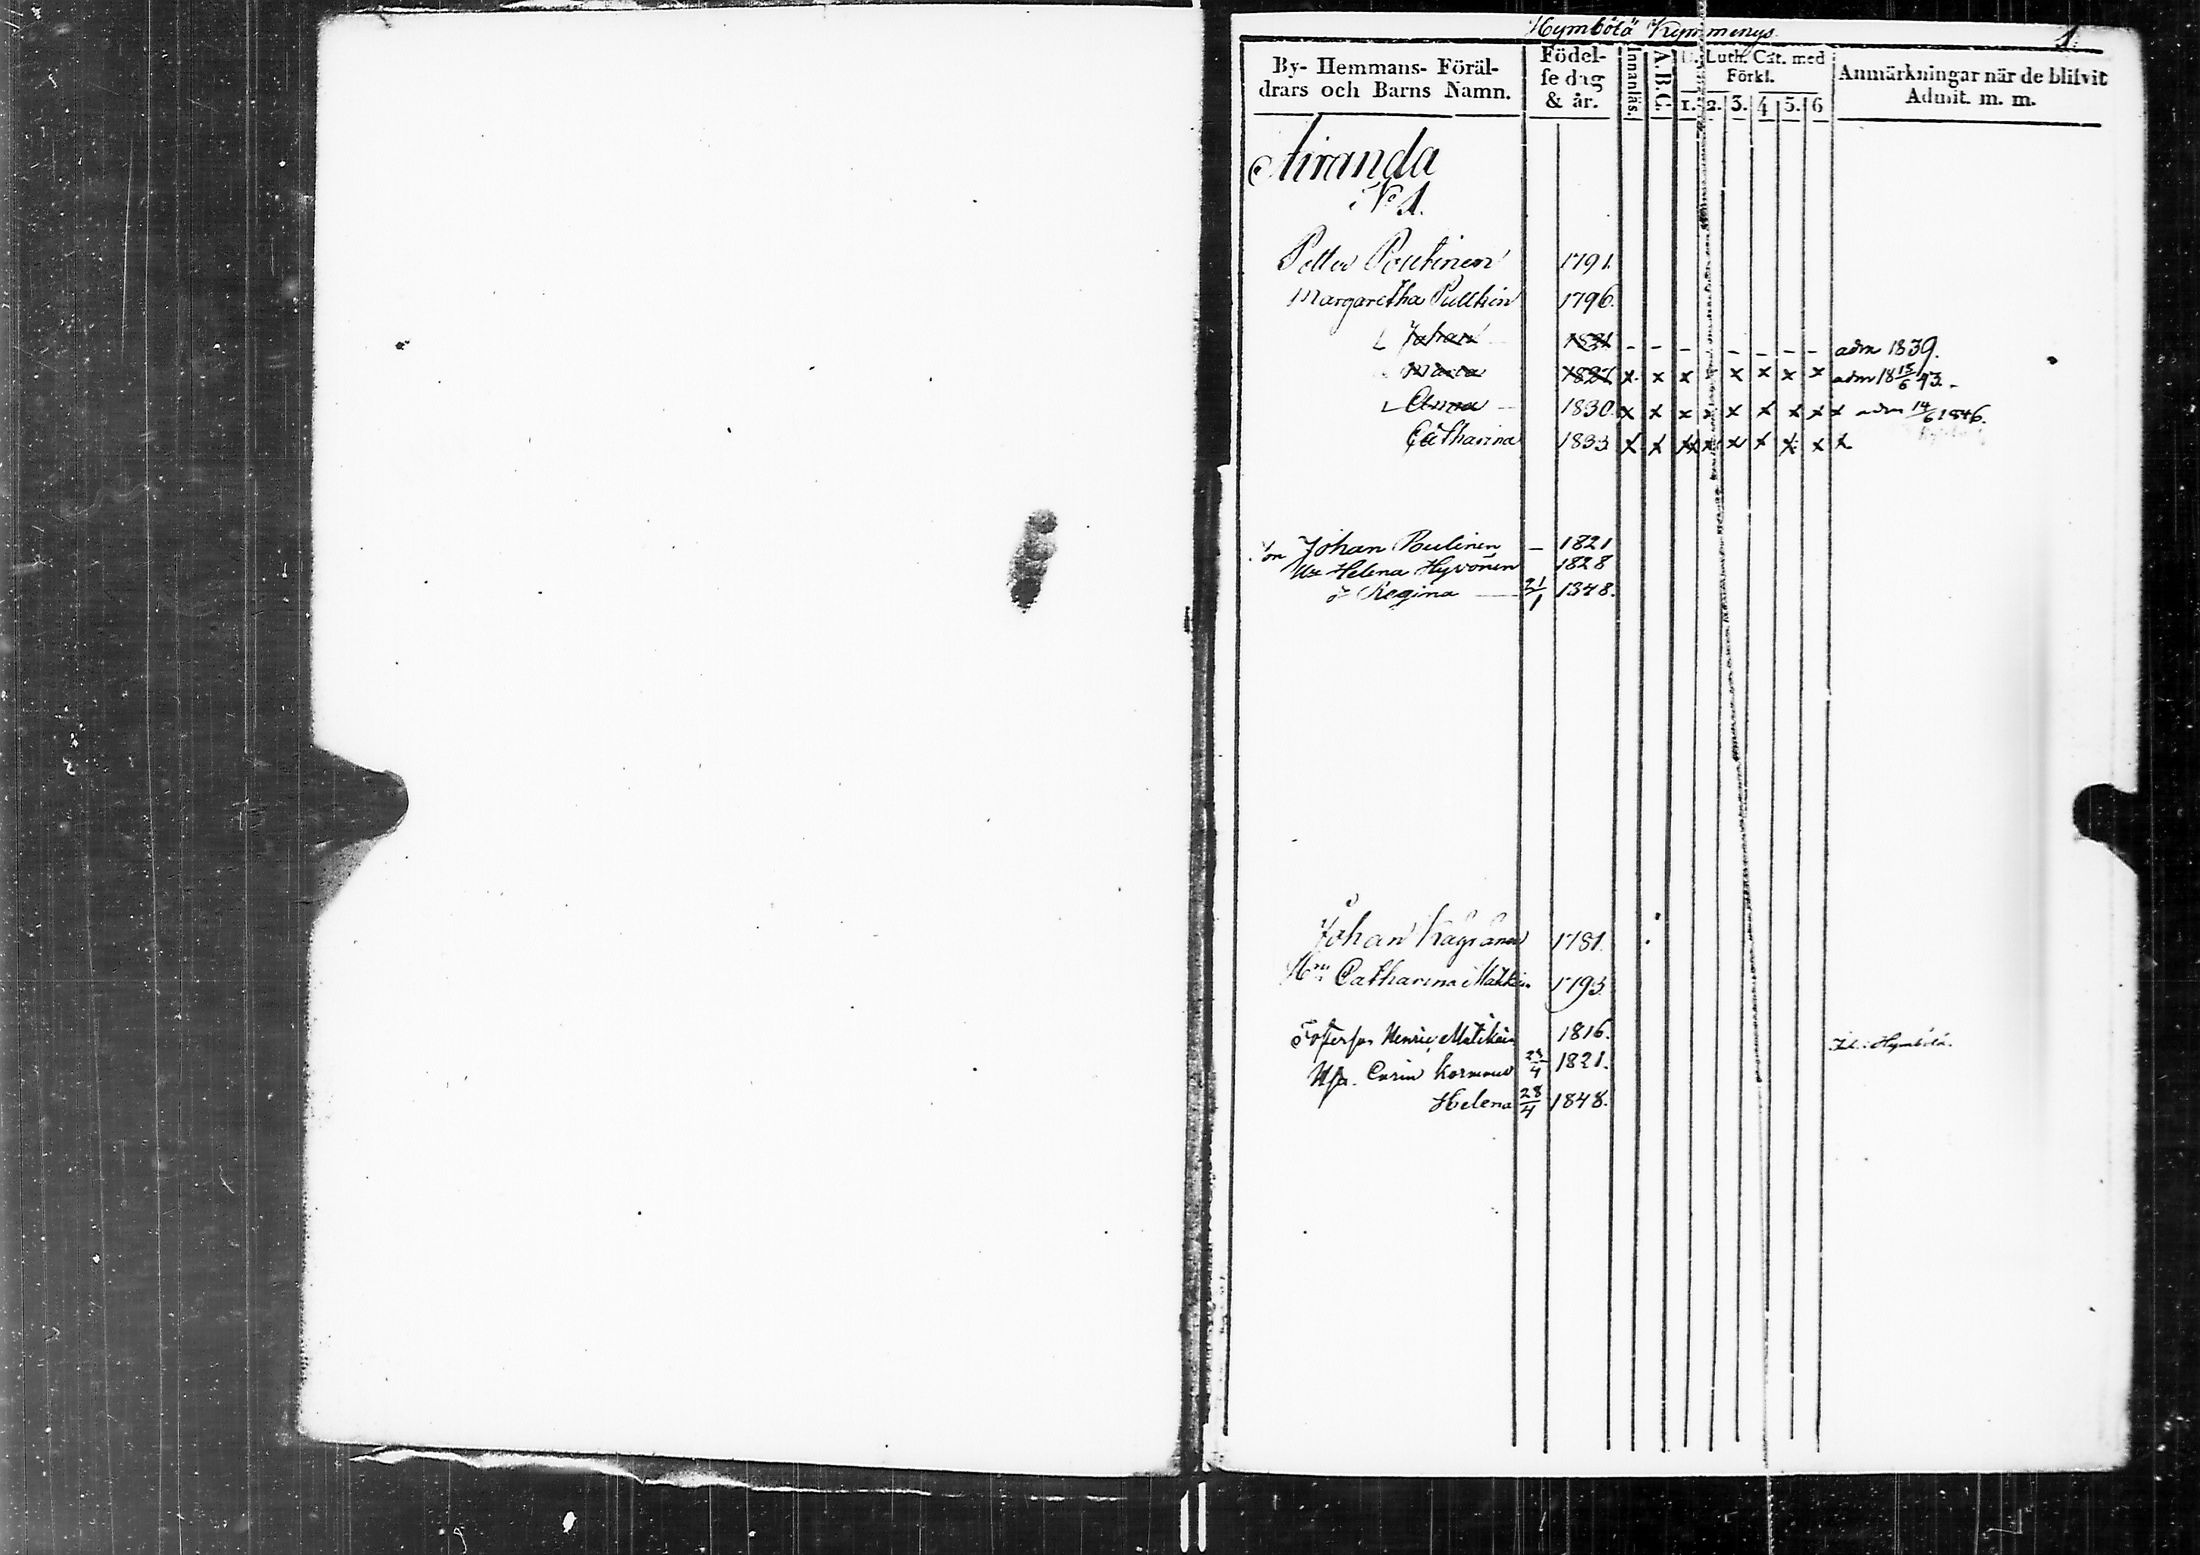 Hymbölä Kymmenys. 1.
By- Hemmans- Föräl-
drars och Barns Namn.
Födel-
se dag
& år.
Innanläs.
A.B.C.
Luth. Cat. med
Förkl.
1. 2. 3. 4 5. 6
Anmärkningar när de blifvit
Admit. m. m.
No 1.
Petter Poutinen 1791.
Margaretha Pulkin 1796.
Johan 1821 - - - - - - - - adm 1839.
Maria 1827 x x x x x x x x adm 18 15/6 43.
Anna 1830. x x x x x x x x x adm 14/6 1846.
Catharina 1833 x x x x x x x x x
Son Johan Poutinen - 1821
Hu Helena Hyvönen 1828
d Regina 21/1 1848.
Johan 1781.
Hru Catharina 1793
Fosterson Henric Matikain 1816. Hymbölä.
Hu. Carin 1821.
Helena 28/4 1848.